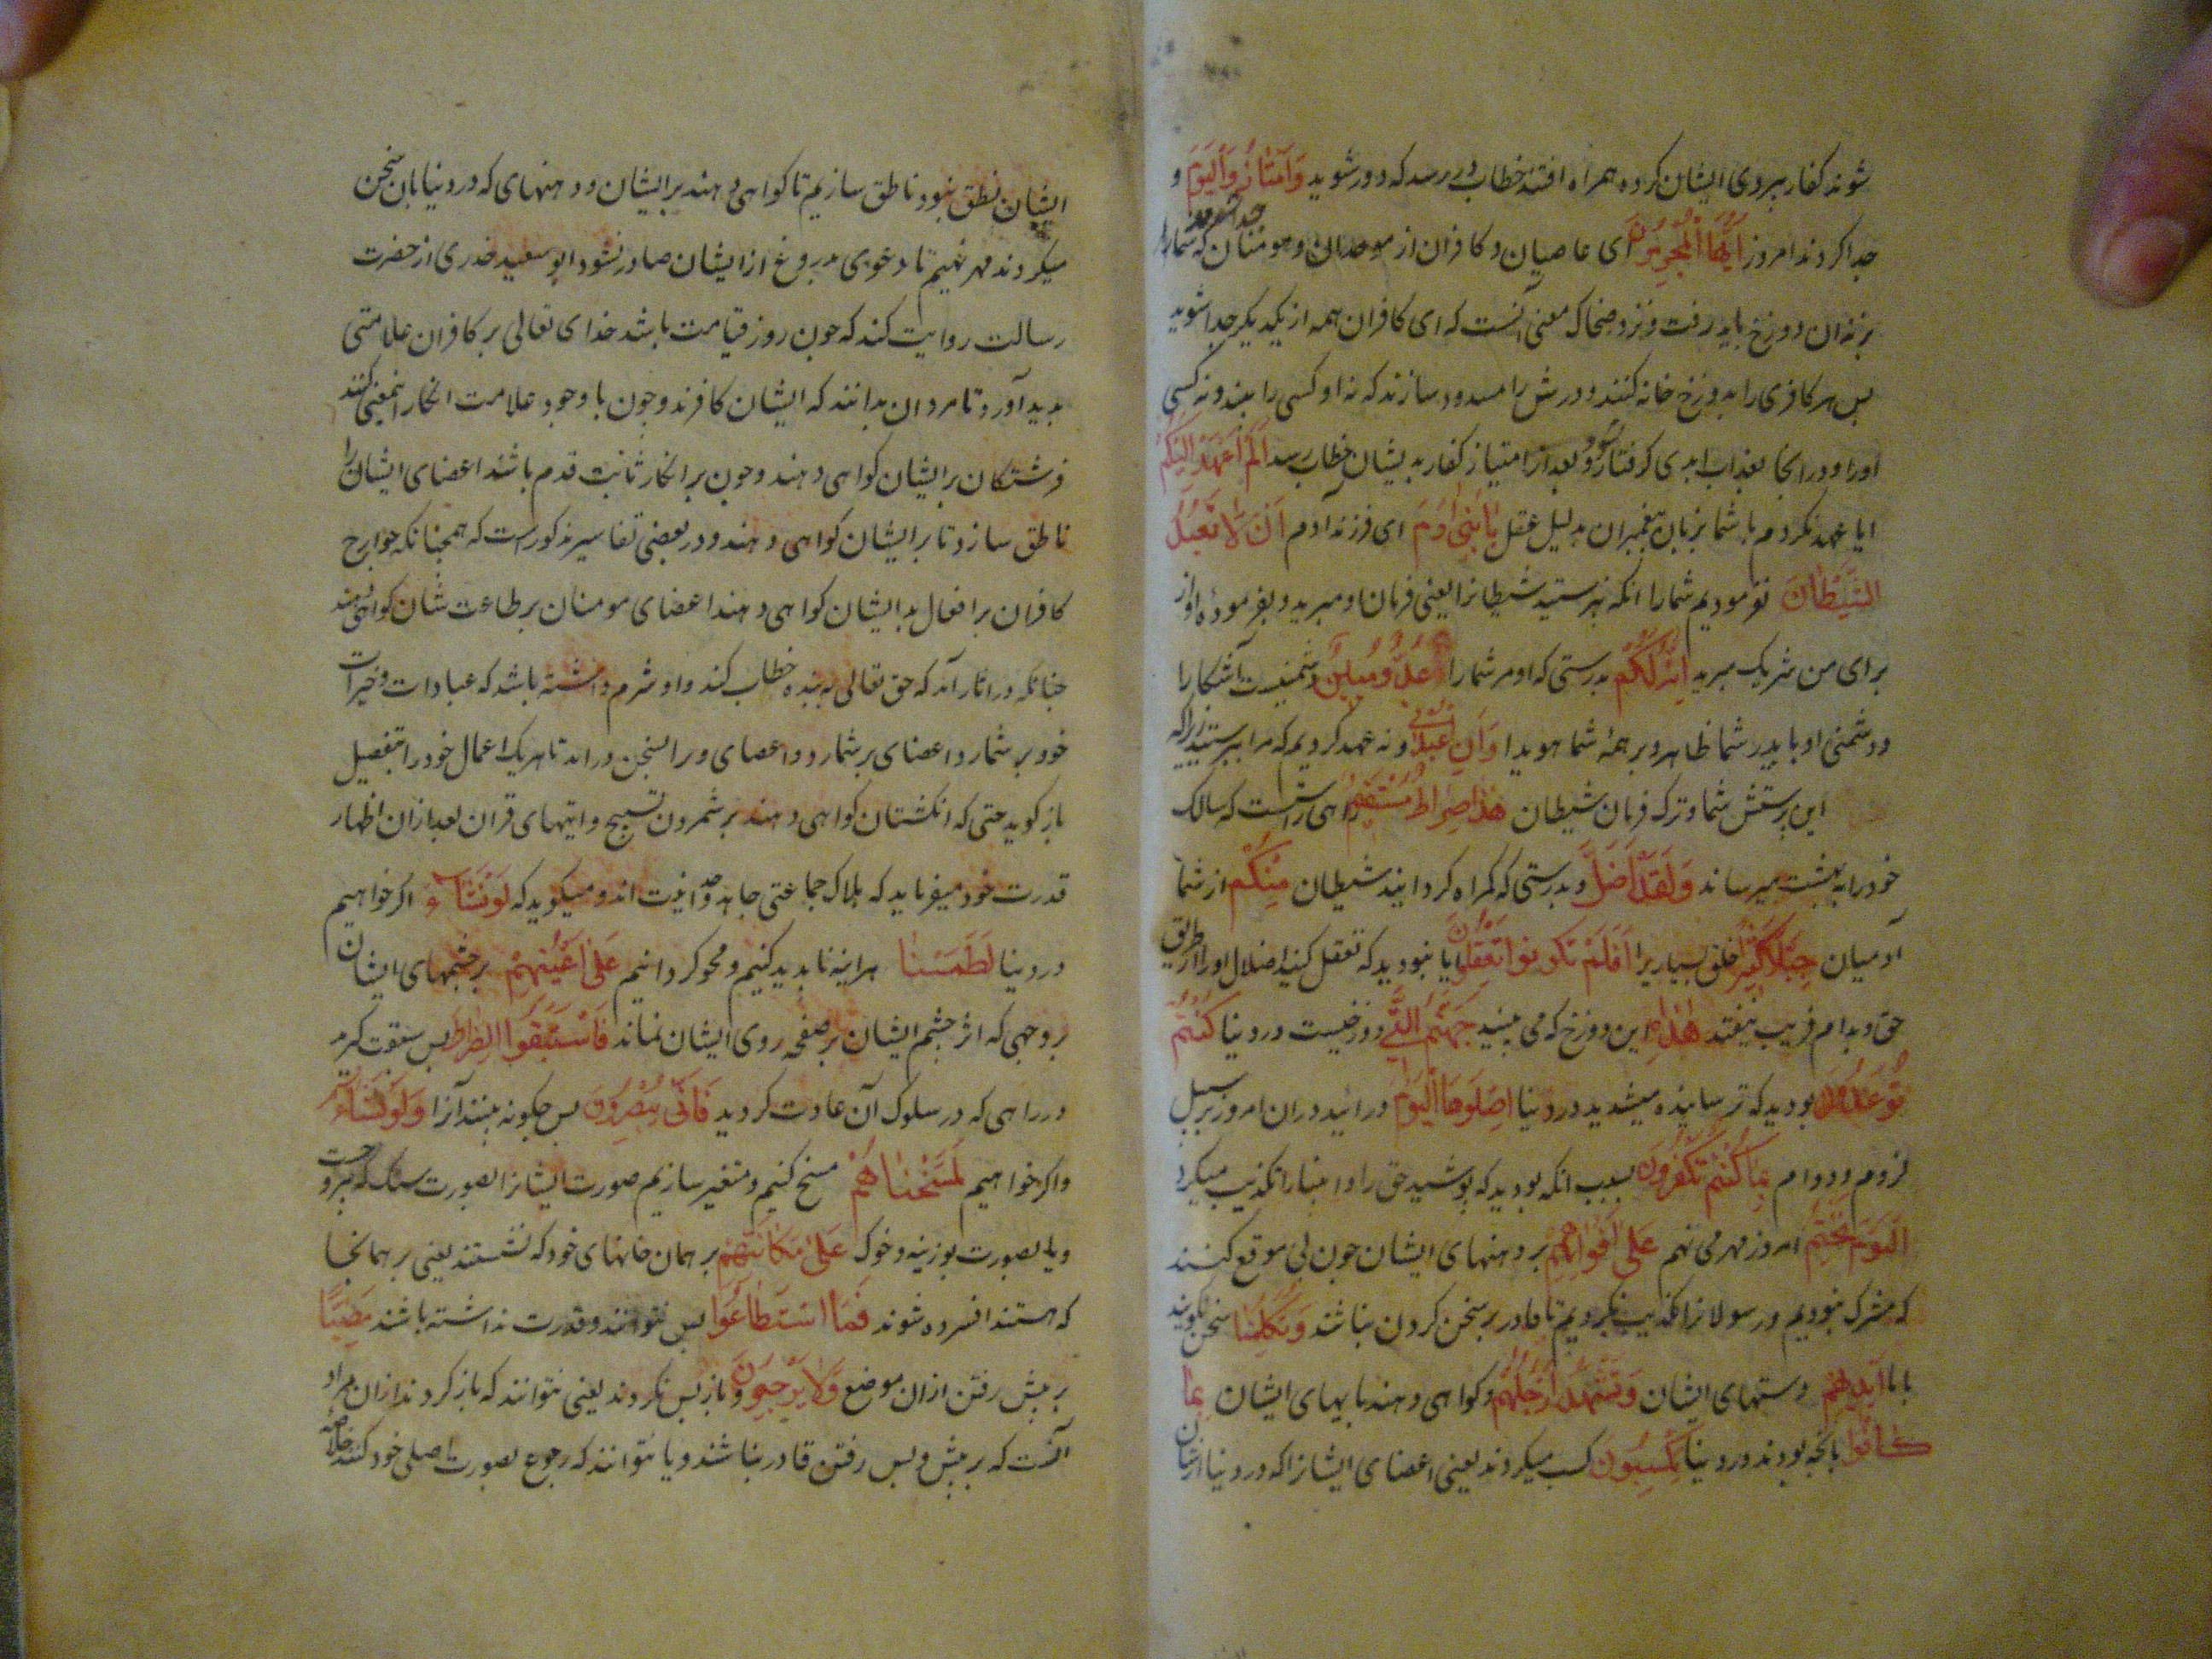 شوند کفار پیروی ایشان کرده همراه افتند خطاب در رسد که دور شوید وَامْتَازُوا الْيَوْمَ و
جدا کردند امروز اَيُّهَا الْمُجْرِمُونَ ای عاصیان و کافران از موحدان و مومنان که شمارا
بزندان دوزخ باید رفت و نزد ضحاک معنی آنست که ای کافران همه از یکدیکر جدا شوید
بس هر کافری را بدوزخ خانه کنند و درش را مسدود سازند که نه او کسی را بیند و نه کسی
اورا و در انجا بعذاب ابدی کرفتار شود و بعد از امتیاز کفار بدیشان خطاب رسد اَلَمْ اَعْهَدْ اِلَيْكُمْ
ایا عهد نکردم با شما بزبان پیغمبران بدلیل عقل يَا بَنِي اٰدَمَ ای فرزند آدم اَنْ لَا تَعْبُدُوا
الشَّيْطَانَ نفرمودیم شمارا انکه نپرستید شیطانرا یعنی فرمان او مبرید و بفرموده او از
برای من شریک مبرید اِنَّهُ لَكُمْ بدرستی که او مر شمارا عَدُوٌّ مُبِينٌ دشمنیست آشکارا
و دشمنی او با پدر شما ظاهر و بر همه شما هویدا وَاَنِ اعْبُدُونِي و نه عهد کردیم که مرا بپرستید زیرا که
این پرستش شما و ترک فرمان شیطان هٰذَا صِرَاطٌ مُسْتَقِيمٌ راهی راست که سالک
خود را به بهشت میرساند وَلَقَدْ اَضَلَّ و بدرستی که کمراه کردانید شیطان مِنْكُمْ از شما
آدمیان جِبِلًّا كَثِيرًا خلق بسیاریرا اَفَلَمْ تَكُونُوا تَعْقِلُونَ ایا نبودید که تعقل کنید اضلال اورا از طریق
حق و بدام فریب نیفتد هٰذِهِ این دوزخ که می بینید جَهَنَّمُ الَّتِي دوزخیست در دنیا كُنْتُمْ
تُوعَدُونَ بودید که ترسانیده میشدید در دنیا اِصْلَوْهَا الْيَوْمَ درائید دران امروز بر سبیل
لزوم و دوام بِمَا كُنْتُمْ تَكْفُرُونَ بسبب انکه بودید که پوشیدید حق را و انبیارا تکذیب میکردید
اَلْيَوْمَ نَخْتِمُ امروز مهر می نهیم عَلٰى اَفْوَاهِهِمْ بر دهنهای ایشان چون بی موقع کنند
که مشرک نبودیم و رسولانرا تکذیب نکردیم تا قادر بر سخن کردن نباشند وَتُكَلِّمُنَا سخن کویند
با ما اَيْدِيهِمْ دستهای ایشان وَتَشْهَدُ اَرْجُلُهُمْ و کواهی دهند پایهای ایشان بِمَا
كَانُوا بانچه بودند در دنیا يَكْسِبُونَ کسب میکردند یعنی اعضای ایشانرا که در دنیا از شان
ایشان نطق نبود ناطق سازیم تا کواهی دهند بر ایشان و دهنهای که در دنیا بان سخن
میکردند مهر نهیم تا دعوی بدروغ از ایشان صادر نشود ابو سعید خدری از حضرت
رسالت روایت کند که چون روز قیامت باشد خدای تعالی بر کافران علامتی
پدید آورد تا مردان بدانند که ایشان کافرند و چون با وجود علامت انکار انمعنی کنند
فرشتکان بر ایشان کواهی دهند و چون بر انکار ثابت قدم باشند اعضای ایشانرا
ناطق سازد تا بر ایشان کواهی دهند و در بعضی تفاسیر مذکور است که همچنانکه جوارح
کافران بر افعال بد ایشان کواهی دهند اعضای مومنان بر طاعت شان کواهی دهند
چنانکه در اثار آمد که حق تعالی به بنده خطاب کند و او شرم داشته باشد که عبادات و خیرات
خود بر شمارد اعضای بر شمارد و اعضای ورا بسخن در اند تا هر یک اعمال خود را بتفصیل
باز کوید حتی که انکشتان کواهی دهند بر شمردن تسبیح و ایتهای قران بعد ازان اظهار
قدرت خود میفرماید که هلاک جماعتی جاهد وحدانیت اند و میکوید که لَوْ نَشَاءُ اکر خواهیم
در دنیا لَطَمَسْنَا هراینه ناپدید کنیم و محو کردانیم عَلٰى اَعْيُنِهِمْ بر چشمهای ایشان
بر وجهی که اثر چشم ایشان بر صفحه روی ایشان نماند فَاسْتَبَقُوا الصِّرَاطَ بس سبقت کیرید
در راهی که در سلوک آن عادت کردید فَاَنّٰى يُبْصِرُونَ بس چکونه بینند آنرا وَلَوْ نَشَاءُ
و اکر خواهیم لَمَسَخْنَاهُمْ مسخ کنیم و متغیر سازیم صورت ایشانرا بصورت سنک که بیروحست
و یا بصورت بوزینه و خوک عَلٰى مَكَانَتِهِمْ بر همان خانهای خود که نشستند یعنی بر همانجا
که هستند افسرده شوند فَمَا اسْتَطَاعُوا بس نتوانند و قدرت نداشته باشند مُضِيًّا
بر پیش رفتن ازان موضع وَلَا يَرْجِعُونَ و باز بس نکردند یعنی نتوانند که باز کردند ازان مراد
آنست که بر پیش و بس رفتن قادر نباشند و یا نتوانند که رجوع بصورت اصلی خود کنند خلاصه